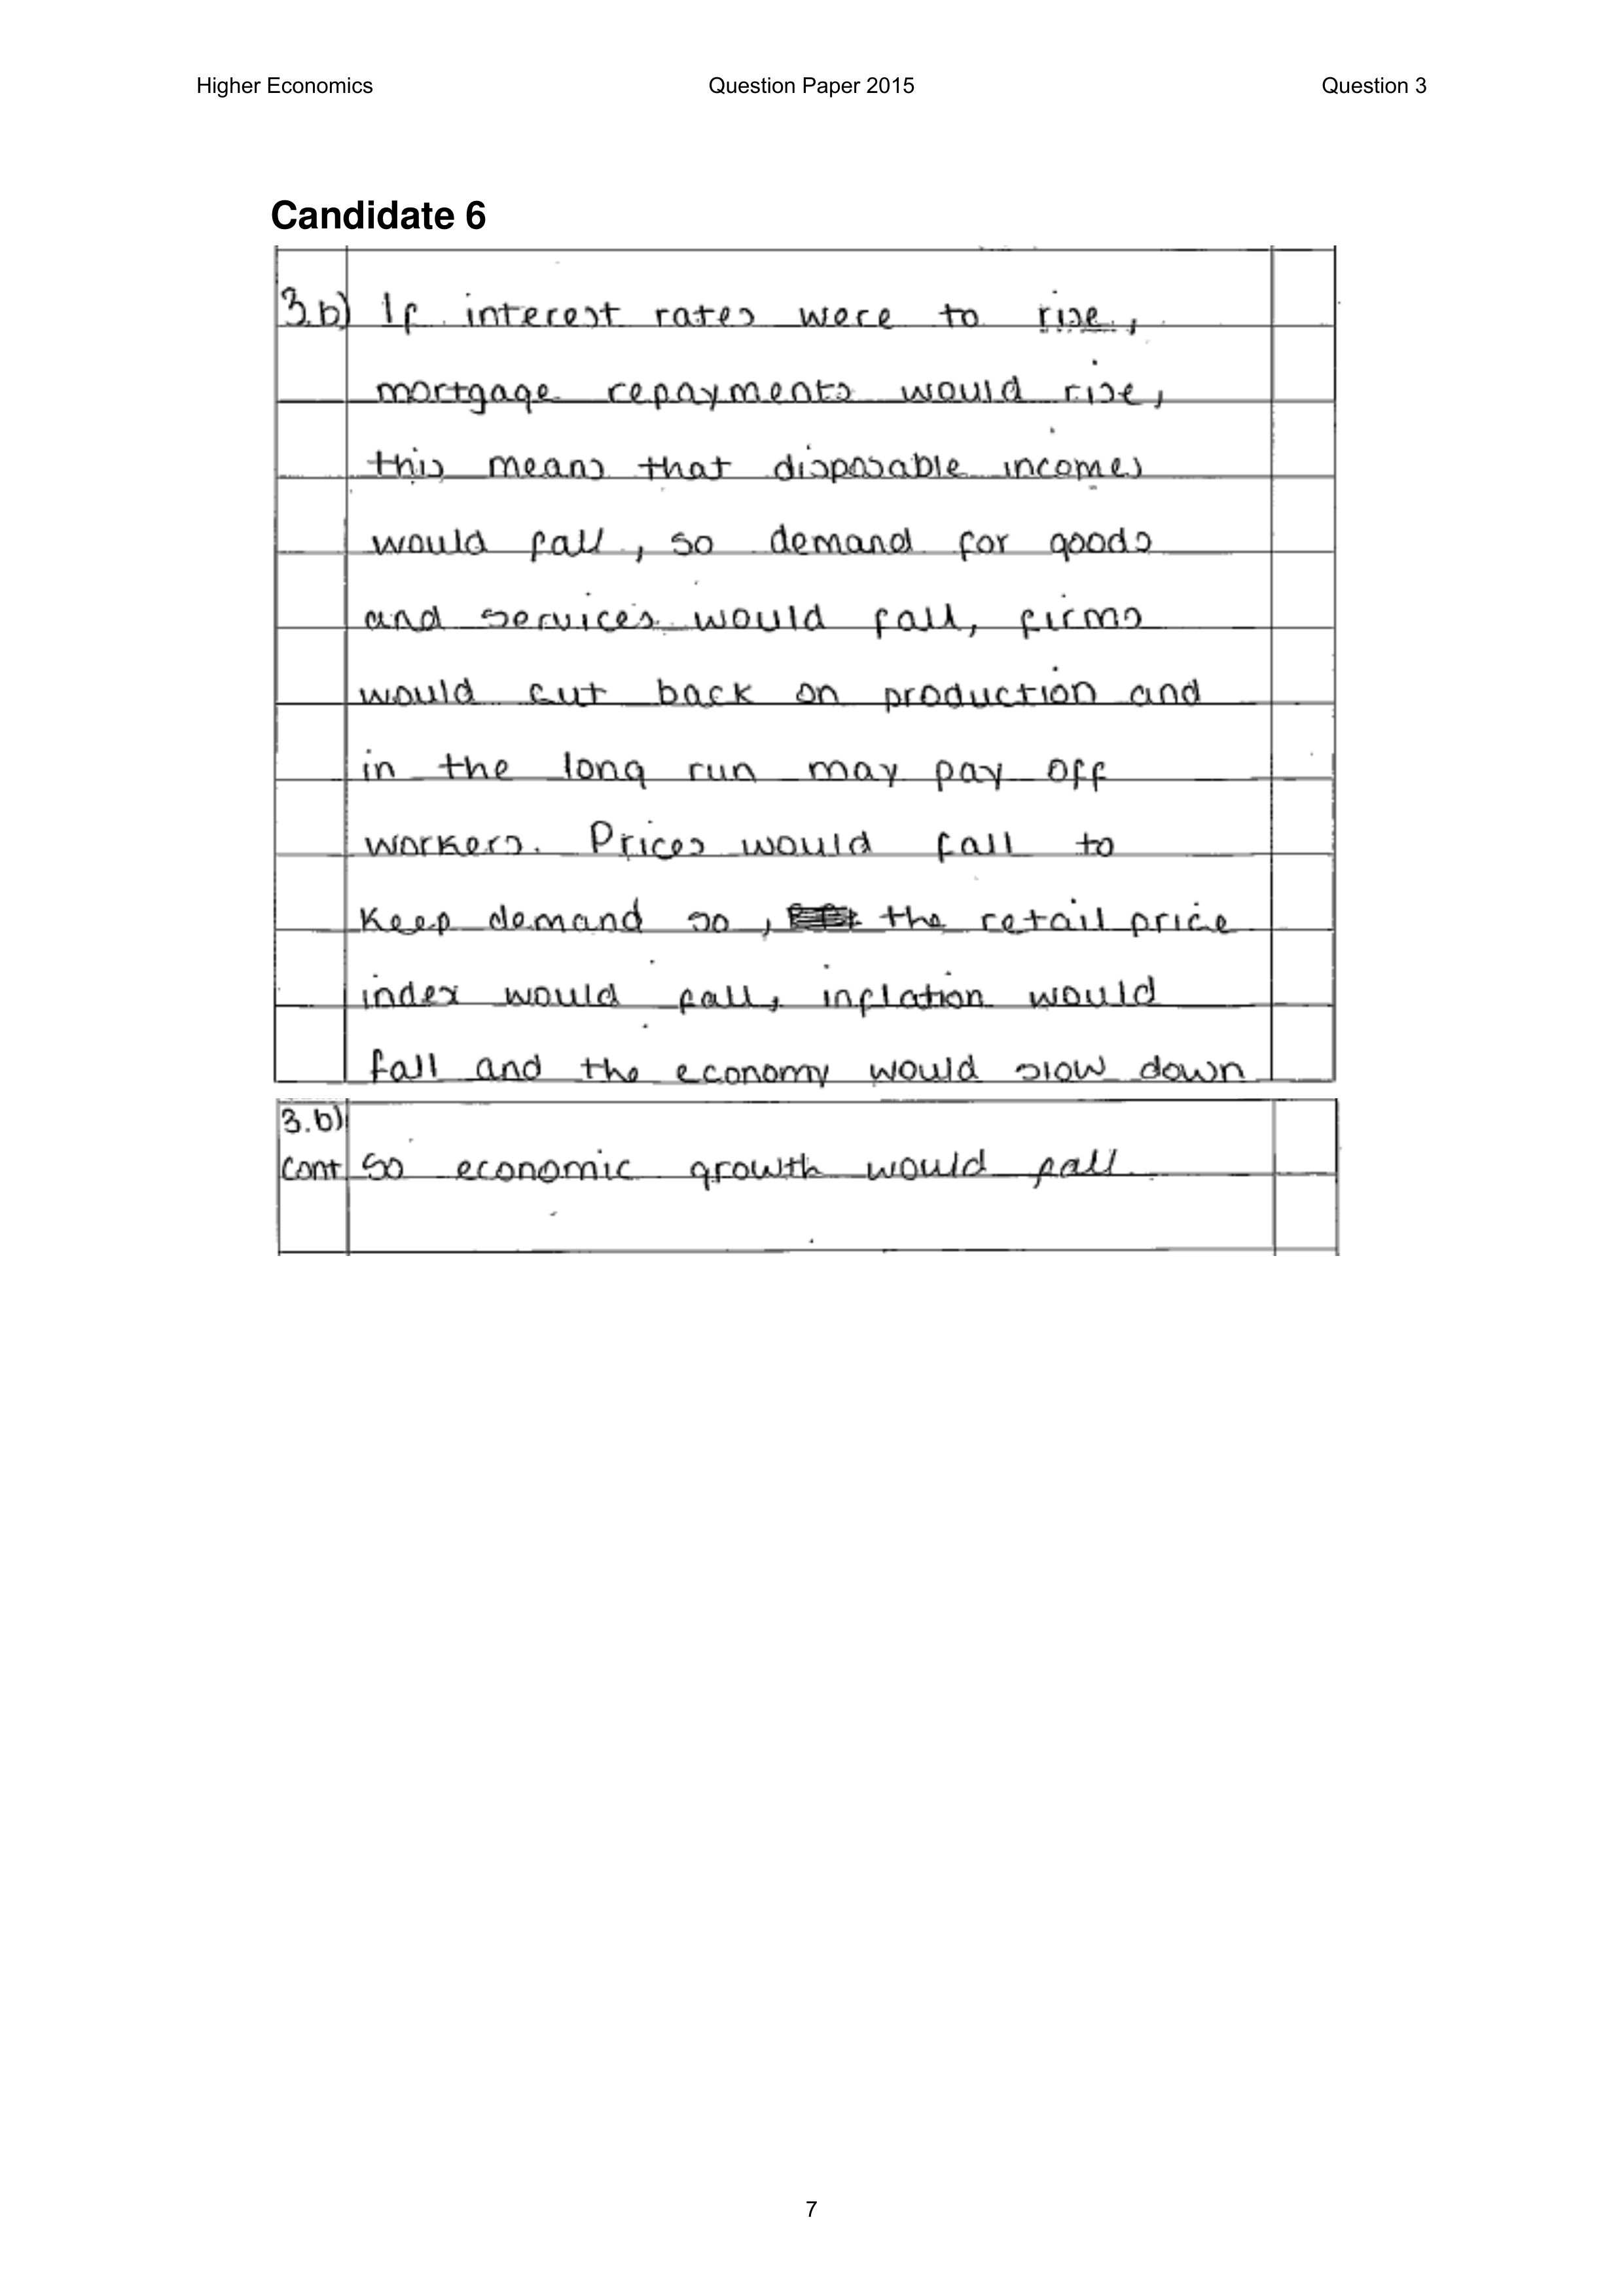 Higher Economics Question Paper 2015 Question 3
Candidate 6
3.b) If interest rates were to rise,
mortgage repayments would rise,
this means that disposable incomes
would fall, so demand for goods
and services would fall, firms
would cut back on production and
in the long run may pay off
workers. Prices would fall to
keep demand so, the retail price
index would fall, inflation would
fall and the economy would slow down
3.b)
cont so economic growth would fall
7